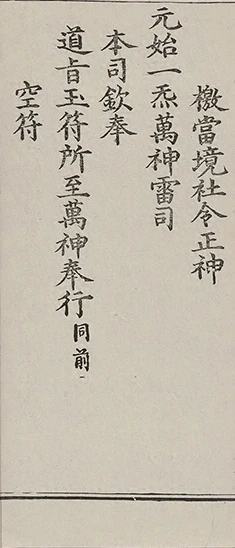 檄當境社令正神
元始一炁萬神雷司
本司欽奉
道旨玉符所至萬神奉行同前
空符